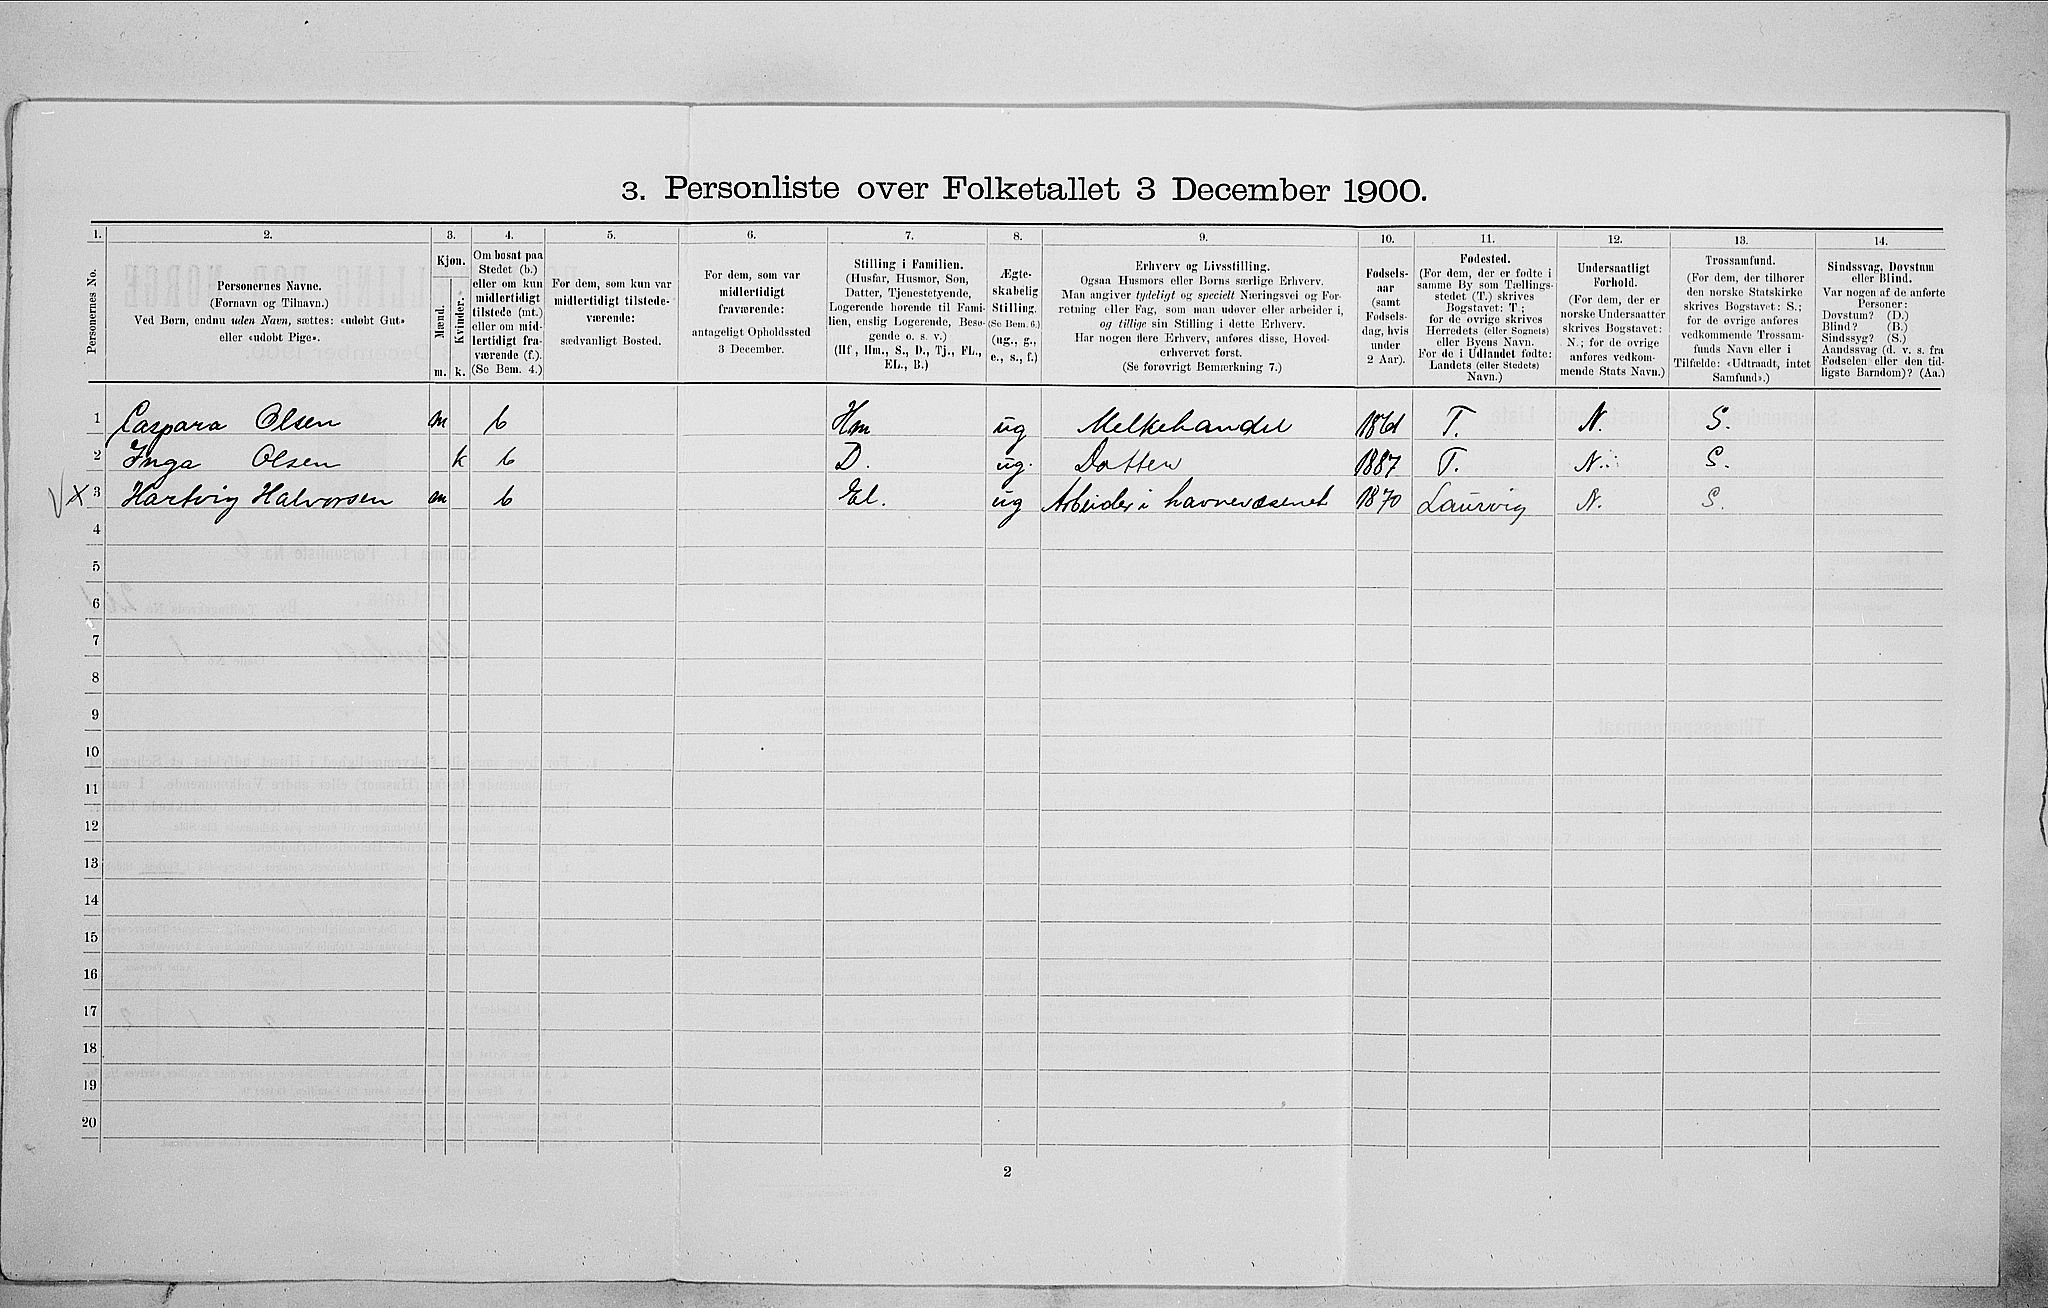 3. Personliste over Folketallet 3 December 1900.
1. 2. 3. 4. 5. 6. 7. 8. 9. 10. 11. 12. 13. 14.
Personernes No.
Personernes Navne.
(Fornavn og Tilnavn.)
Ved Børn, endnu uden Navn, sættes: «udøbt Gut»
eller «udøbt Pige».
Kjøn.
Mænd.
Kvinder.
m. k.
Om bosat paa
Stedet (b.)
eller om kun
midlertidigt
tilstede (mt.)
eller om mid-
lertidigt fra-
værende (f.).
(Se Bem. 4.)
For dem, som kun var
midlertidigt tilstede-
værende:
sædvanligt Bosted.
For dem, som var
midlertidigt
fraværende:
antageligt Opholdssted
3 December.
Stilling i Familien.
(Husfar, Husmor, Søn,
Datter, Tjenestetyende,
Logerende hørende til Fami-
lien, enslig Logerende, Besø-
gende o. s. v.)
(Hf, Hm., S., D., Tj., FL.,
EL., B.)
Ægte-
skabelig
Stilling.
(Se Bem. 6.)
(ug., g.,
e., s., f.)
Erhverv og Livsstilling.
Ogsaa Husmors eller Børns særlige Erhverv.
Man angiver tydeligt og specielt Næringsvei og For-
retning eller Fag, som man udøver eller arbeider i,
og tillige sin Stilling i dette Erhverv.
Har nogen flere Erhverv, anføres disse, Hoved-
erhvervet først.
(Se forøvrigt Bemærkning 7.)
Fødsels-
aar
(samt
Fødsels-
dag, hvis
under
2 Aar).
Fødested.
(For dem, der er fødte i
samme By som Tællings-
stedet (T.) skrives
Bogstavet: T;
for de øvrige skrives
Herredets (eller Sognets)
eller Byens Navn.
For de i Udlandet fødte:
Landets (eller Stedets)
Navn.)
Undersaatligt
Forhold.
(For dem, der er
norske Undersaatter
skrives Bogstavet:
N.; for de øvrige
anføres vedkom-
mende Stats Navn.)
Trossamfund.
(For dem, der tilhører
den norske Statskirke
skrives Bogstavet: S.;
for de øvrige anføres
vedkommende Trossam-
funds Navn eller i
Tilfælde: «Udtraadt, intet
Samfund».)
Sindssvag, Døvstum
eller Blind.
Var nogen af de anførte
Personer:
Døvstum? (D.)
Blind? (B.)
Sindssyg? (S.)
Aandssvag (d. v. s. fra
Fødselen eller den tid-
ligste Barndom)? (Aa.)
1 Caspara Olsen m b Hm ug Melkehandel 1861 T. N. S.
2 Inga Olsen k b D. ug. Datter 1887 T. N. S.
3 Hartvig Halvorsen m b El. ug Arbeider i havnevæsenet 1870 Laurvig N. S.
4
5
6
7
8
9
10
11
12
13
14
15
16
17
18
19
20
2